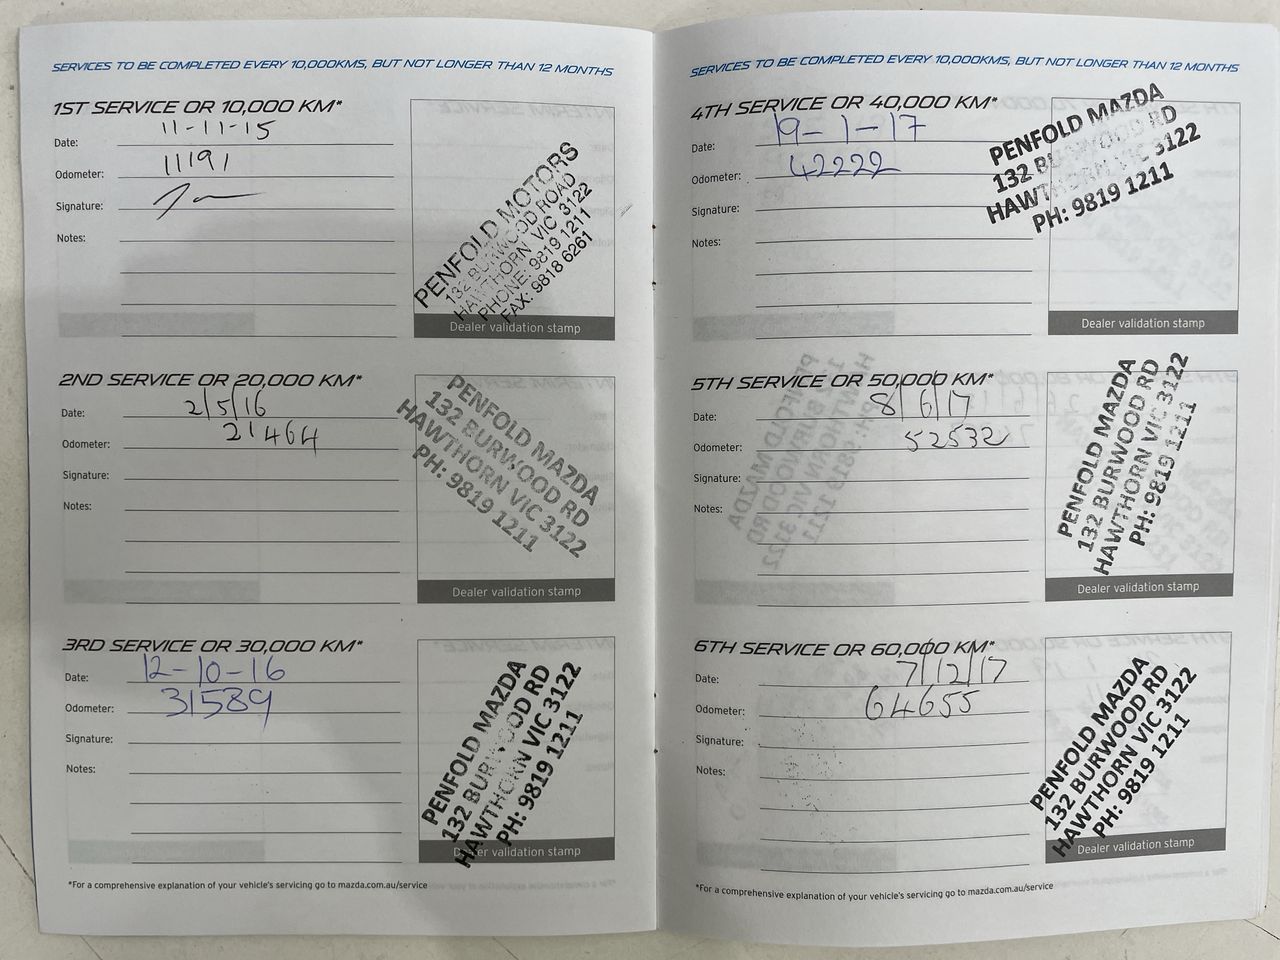 SERVICES TO BE COMPLETED EVERY 10,000KMS, BUT NOT LONGER THAN 12 MONTHS
1ST SERVICE OR 10,000 KM*
Date: 11-11-15
Odometer: 11191
Signature:
Notes:
PENFOLD MOTORS
132 BURWOOD ROAD
HAWTHORN VIC 3122
PHONE: 9819 1211
FAX: 9818 6261
Dealer validation stamp
2ND SERVICE OR 20,000 KM*
Date: 2/5/16
Odometer: 21464
Signature:
Notes:
PENFOLD MAZDA
132 BURWOOD RD
HAWTHORN VIC 3122
PH: 9819 1211
Dealer validation stamp
3RD SERVICE OR 30,000 KM*
Date: 12-10-16
Odometer: 31589
Signature:
Notes:
PENFOLD MAZDA
132 BURWOOD RD
HAWTHORN VIC 3122
PH: 9819 1211
Dealer validation stamp
*For a comprehensive explanation of your vehicle's servicing go to mazda.com.au/service
SERVICES TO BE COMPLETED EVERY 10,000KMS, BUT NOT LONGER THAN 12 MONTHS
4TH SERVICE OR 40,000 KM*
Date: 19-1-17
Odometer: 42222
Signature:
Notes:
PENFOLD MAZDA
132 BURWOOD RD
HAWTHORN VIC 3122
PH: 9819 1211
Dealer validation stamp
5TH SERVICE OR 50,000 KM*
Date: 8/6/17
Odometer: 52532
Signature:
Notes:
PENFOLD MAZDA
132 BURWOOD RD
HAWTHORN VIC 3122
PH: 9819 1211
Dealer validation stamp
6TH SERVICE OR 60,000 KM*
Date: 7/12/17
Odometer: 64655
Signature:
Notes:
PENFOLD MAZDA
132 BURWOOD RD
HAWTHORN VIC 3122
PH: 9819 1211
Dealer validation stamp
*For a comprehensive explanation of your vehicle's servicing go to mazda.com.au/service